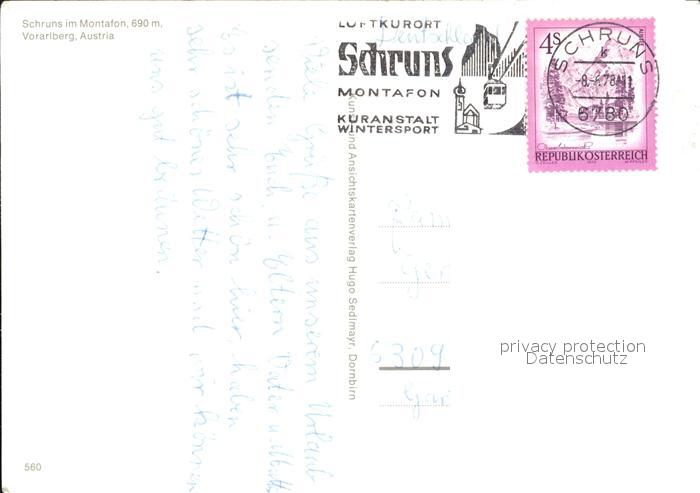 Schruns im Montafon, 690 m,
Vorarlberg, Austria
LUFTKURORT
Schruns
MONTAFON
KURANSTALT
WINTERSPORT
4S
SCHRUNS
6780
REPUBLIK ÖSTERREICH
Deutschland
Viele Grüße aus unserem Urlaub
senden Euch u. Eltern Vater u.
Es ist sehr schön hier, haben
sehr schönes Wetter und wir können
uns gut
Kunst- und Ansichtskartenverlag Hugo Sedlmayr, Dornbirn
Fam
Ger
6309
Gar
privacy protection
Datenschutz
560